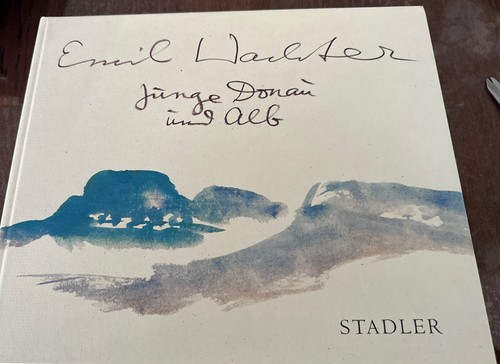 Emil Wachter
Junge Donau
und Alb
STADLER